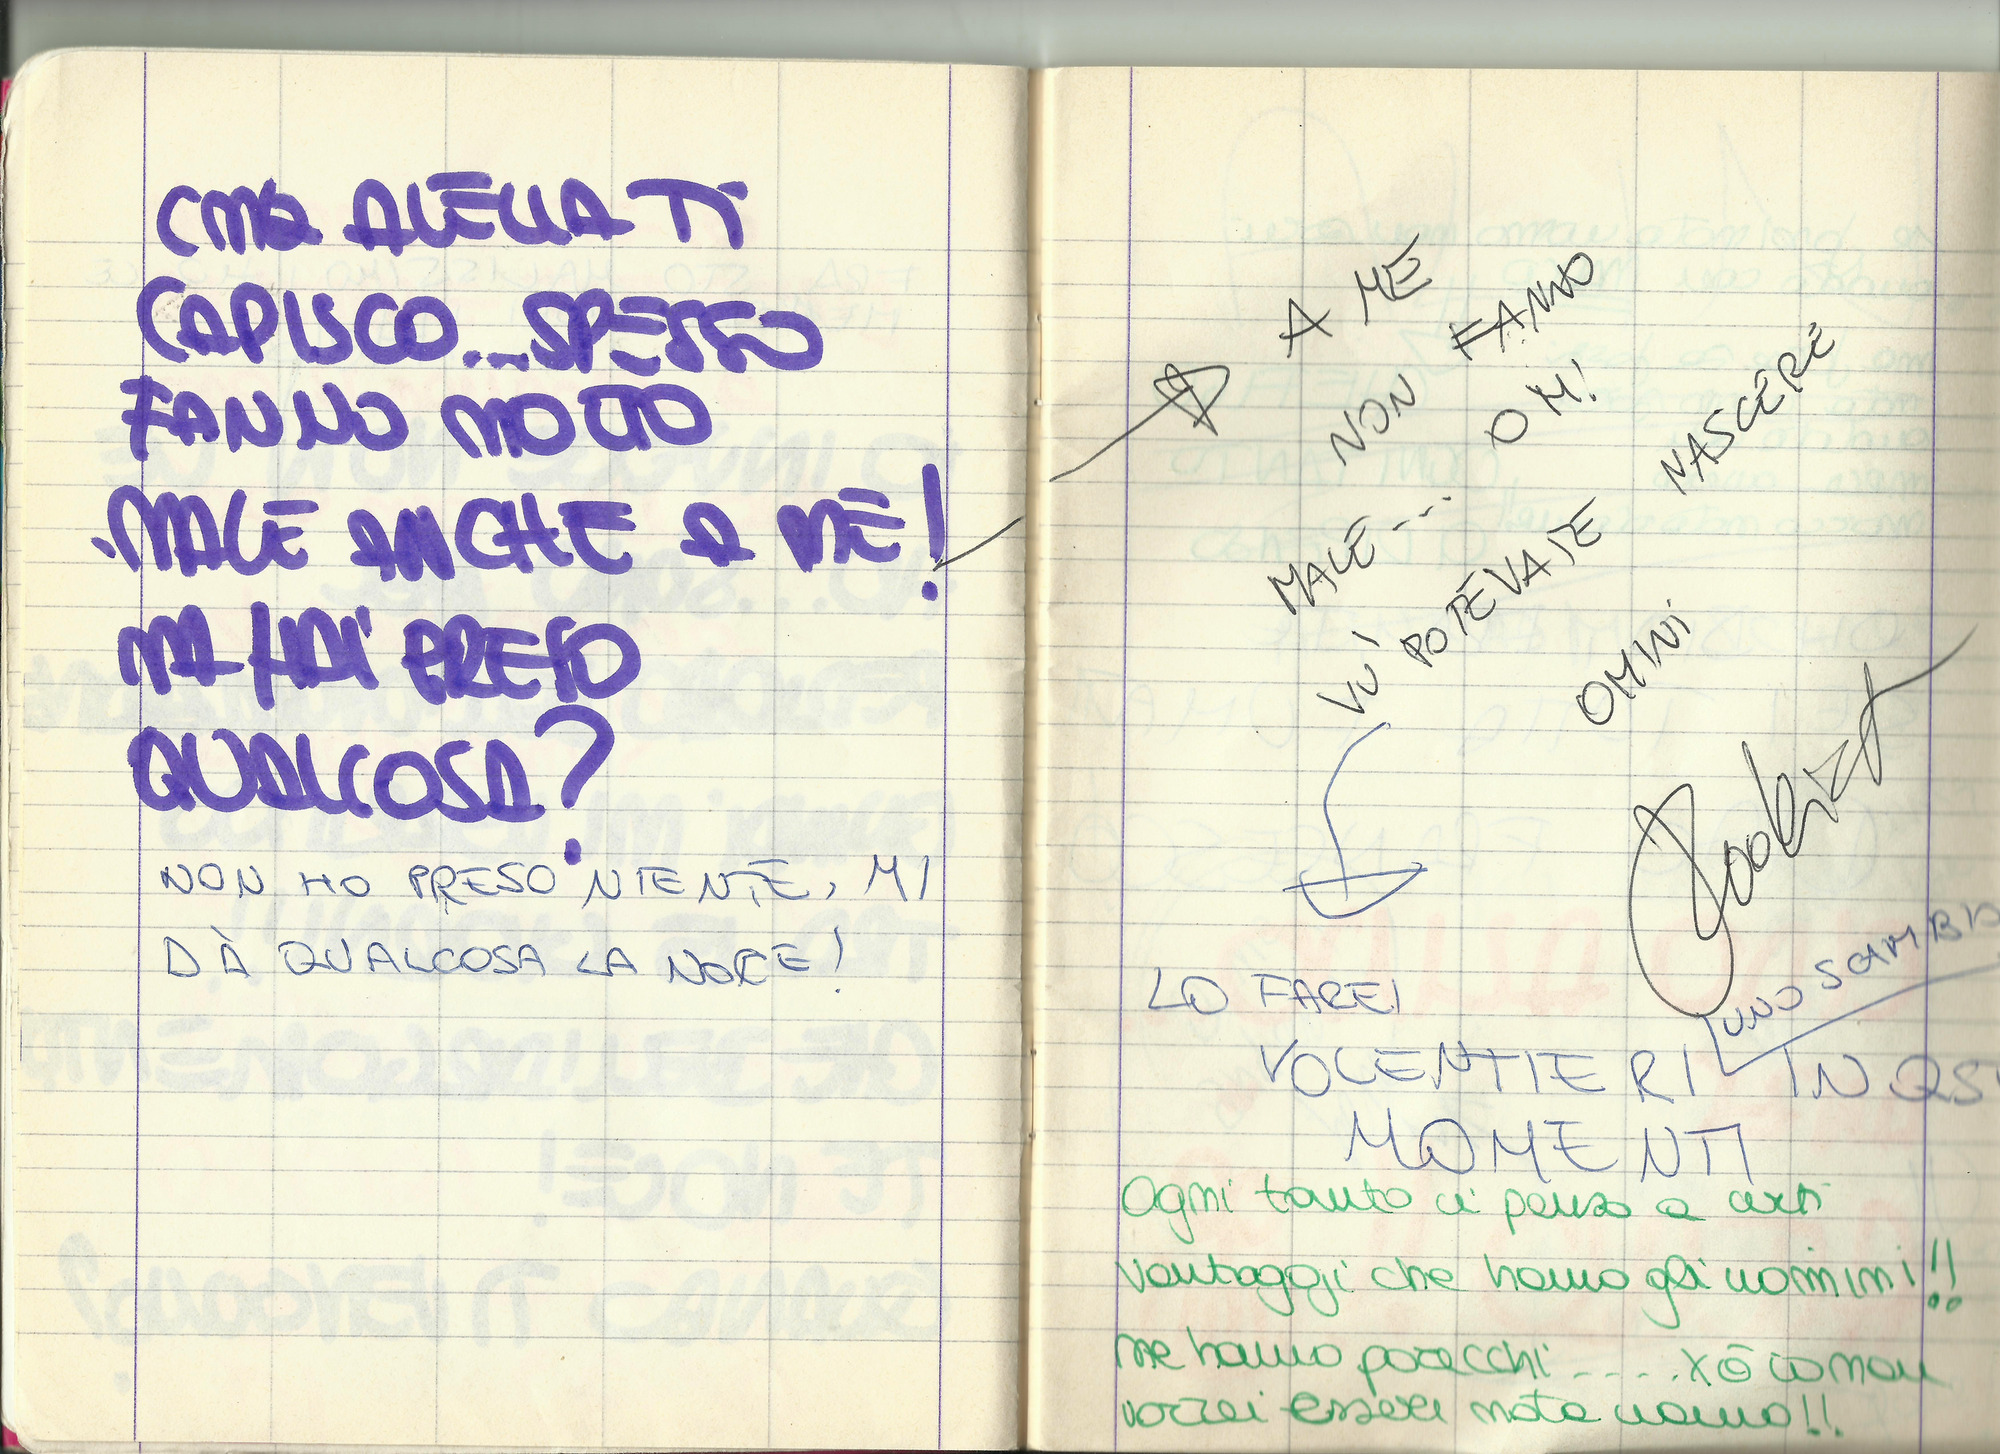 CMQ ALELLA TI
CAPISCO...SPESSO
FANNO MOLTO
MALE ANCHE A ME!
MA HAI PRESO
QUALCOSA?
NON HO PRESO NIENTE, MI
DÀ QUALCOSA LA NOCE!
A ME
NON FANNO
MALE... OM!
VUI POTEVATE NASCERE
OMINI
UNO SCAMBIO
LO FAREI
VOLENTIERI IN QSTI
MOMENTI
Ogni tanto ci penso a certi
vantaggi che hanno gli uomini!!
ne hanno parecchi.......xò io non
vorrei essere nata uomo!!